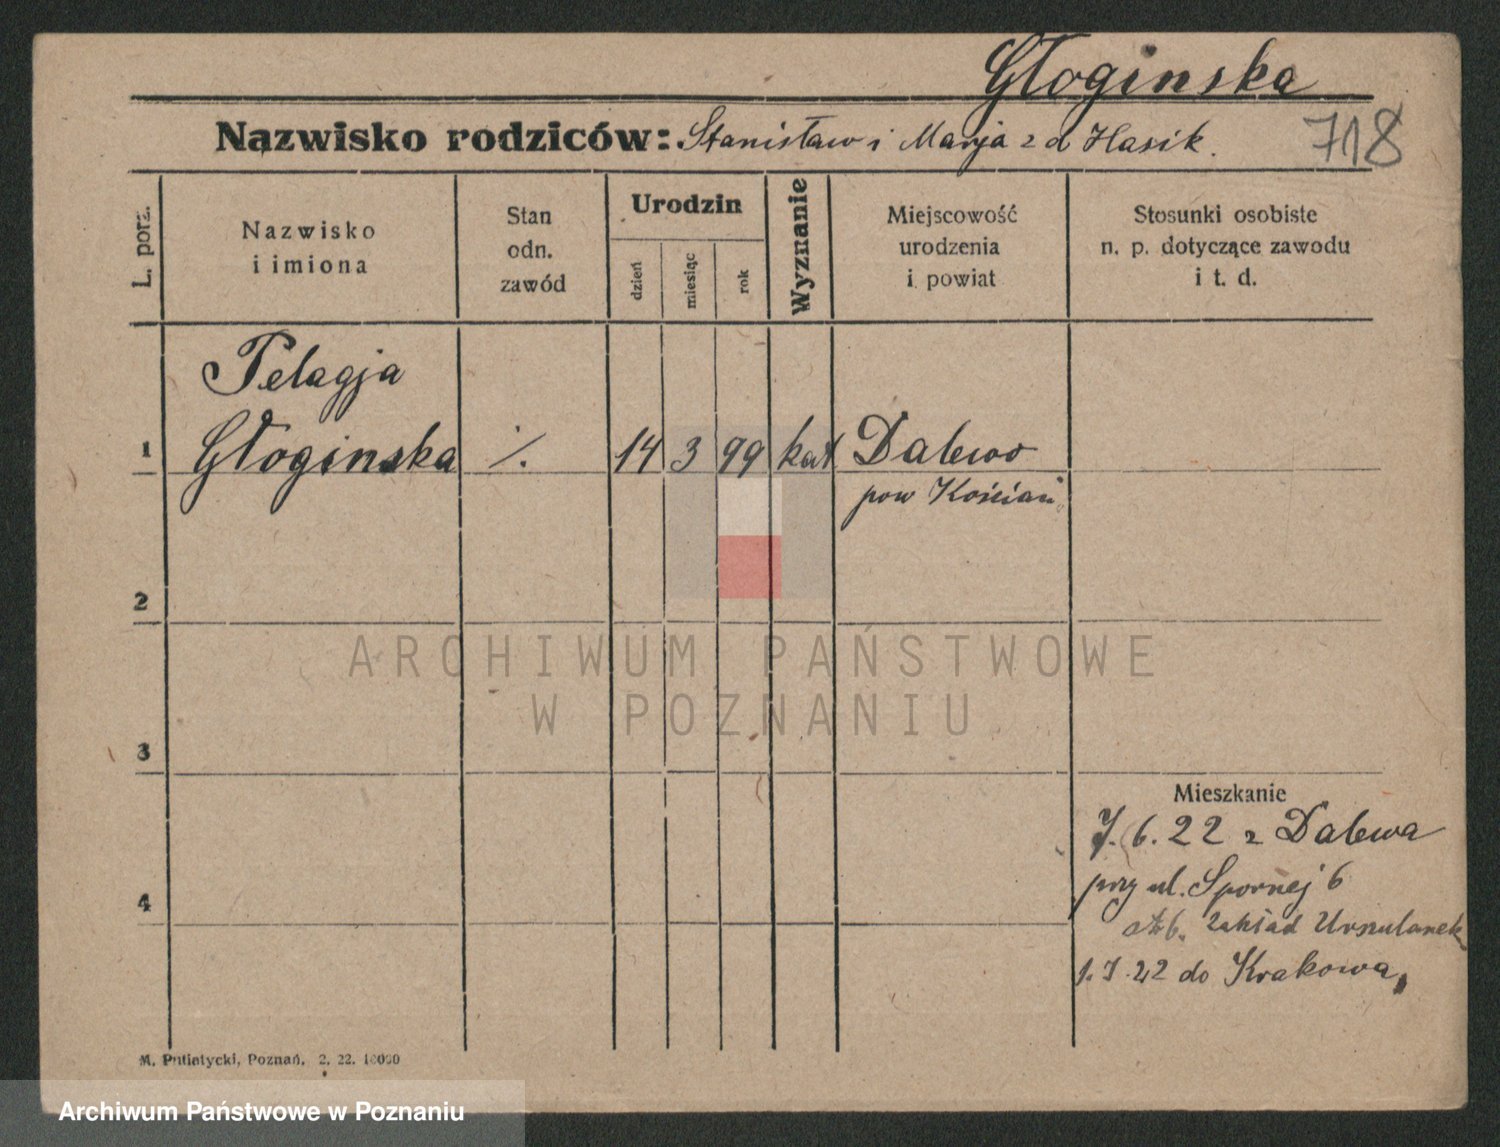 Głoginska
Nazwisko rodziców: Stanisław i Marja z d Hasik.
718
L. porz.
Nazwisko i imiona
Stan odn. zawód
Urodzin
dzień
miesiąc
rok
Wyznanie
Miejscowość urodzenia i powiat
Stosunki osobiste n. p. dotyczące zawodu i t. d.
Pelagja
1 Głoginska ./. 14 3 99 kat Dalewo
pow Kościan
2
ARCHIWUM PAŃSTWOWE
W POZNANIU
3
Mieszkanie
7.6.22 z Dalewa
przy ul. Spornej 6
4
Zakład Urszulanek
1.7.22 do Krakowa,
M. Putiatycki, Poznań, 2. 22. 10000
Archiwum Państwowe w Poznaniu